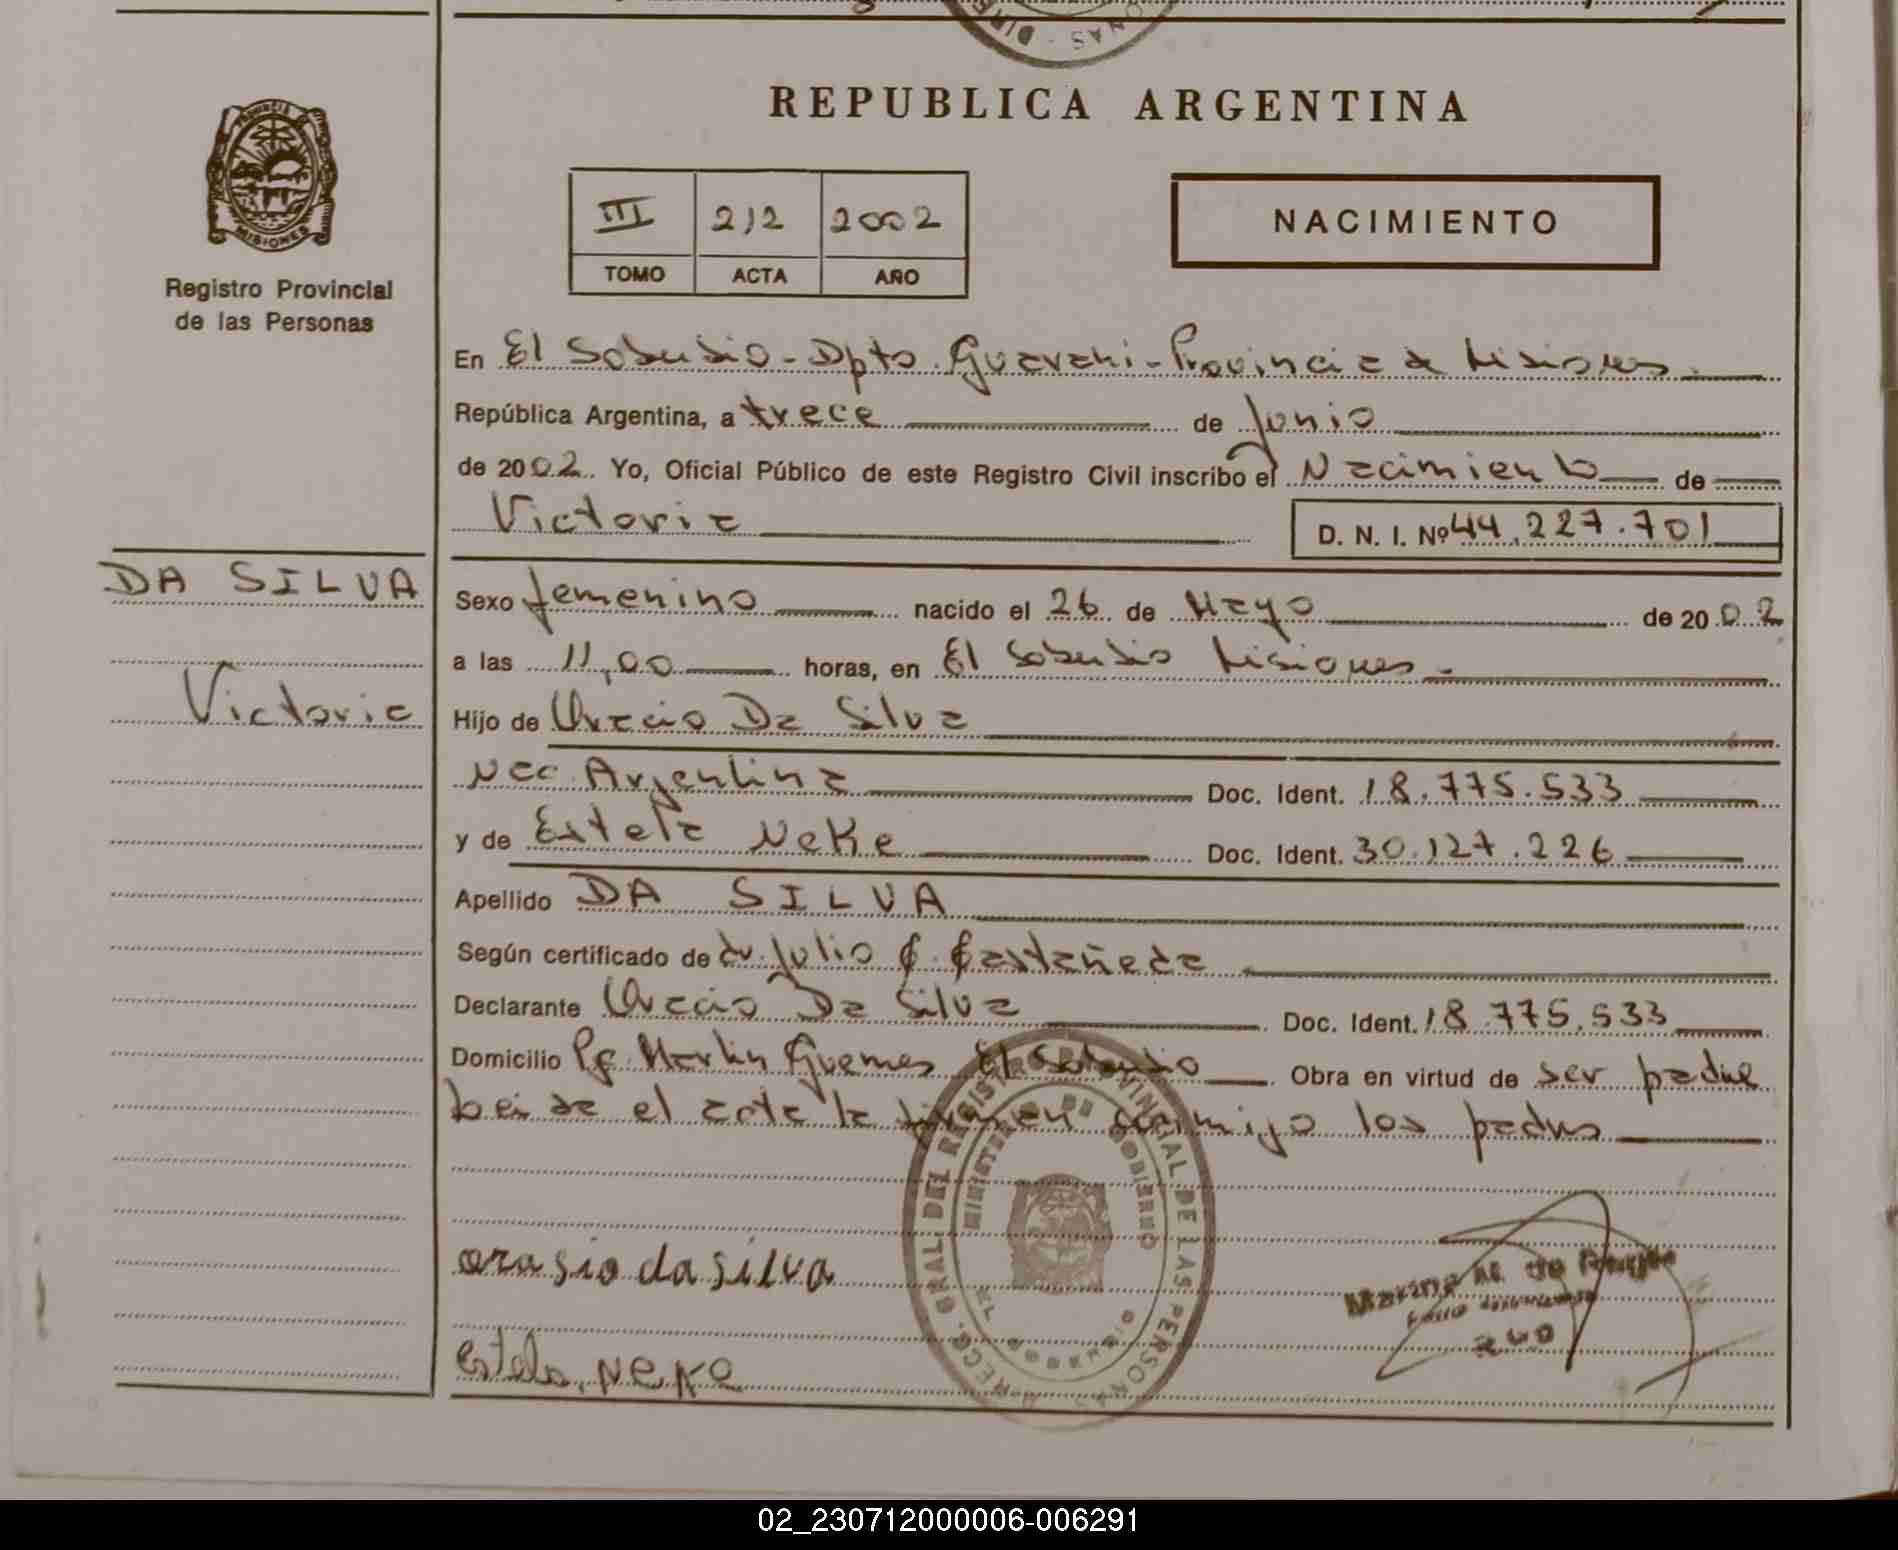 REPUBLICA ARGENTINA
PROVINCIA DE
MISIONES
Registro Provincial
de las Personas
III 212 2002
TOMO ACTA AÑO
NACIMIENTO
En El Soberbio - Dpto. Guarani - Provincia de Misiones.
República Argentina, a trece de Junio
de 2002. Yo, Oficial Público de este Registro Civil inscribo el Nacimiento de
Victoria
D. N. I. Nº 44.227.701
DA SILVA
Victoria
Sexo femenino nacido el 26 de Mayo de 2002
a las 11,00 horas, en El Soberbio Misiones.
Hijo de Oracio Da Silva
Nac. Argentina Doc. Ident. 18.775.533
y de Estela Neke Doc. Ident. 30.127.226
Apellido DA SILVA
Según certificado de dr. Julio C. Castañeda
Declarante Oracio Da Silva Doc. Ident. 18.775.533
Domicilio Pje. Martin Guemes El Soberbio Obra en virtud de ser padre
leida el acta la firman conmigo los padres
DIRECC. GRAL. DEL REGISTRO PROVINCIAL DE LAS PERSONAS
MINISTERIO DE GOBIERNO
EL SOBERBIO
orasio da silva
Estela, NEKE
02_230712000006-006291